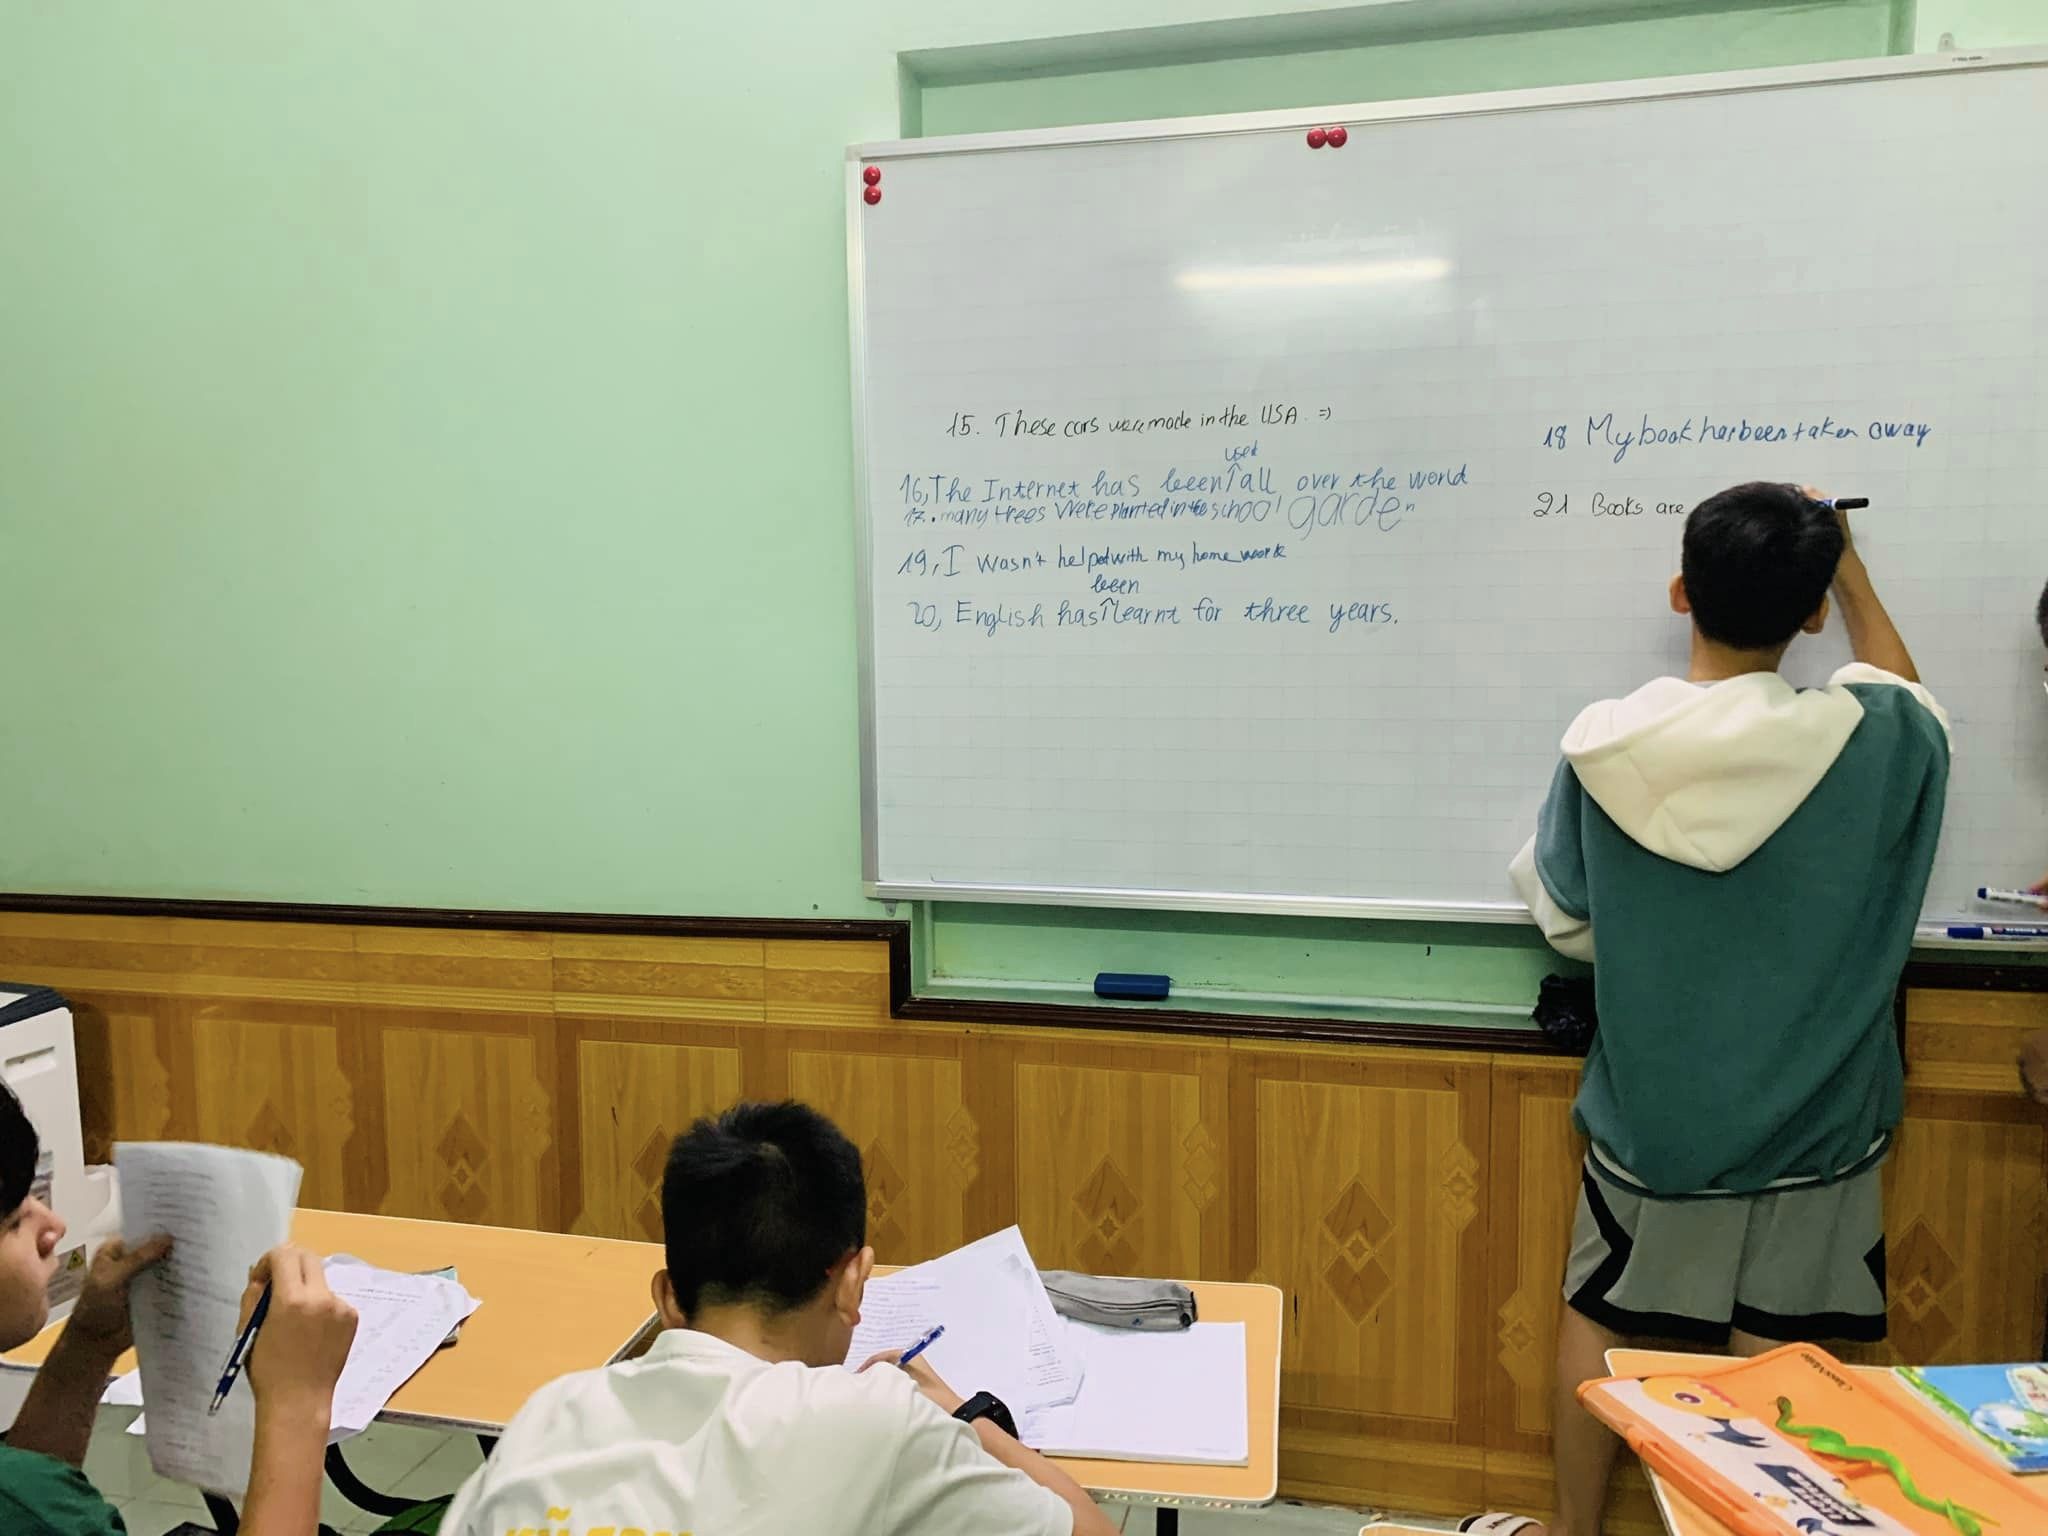 15. These cars were made in the USA. =>
used
16, The Internet has been all over the world
17. many trees were planted in the school garden
19, I wasn't helped with my home work
been
20, English has learnt for three years.
18 My book has been taken away
21 Books are